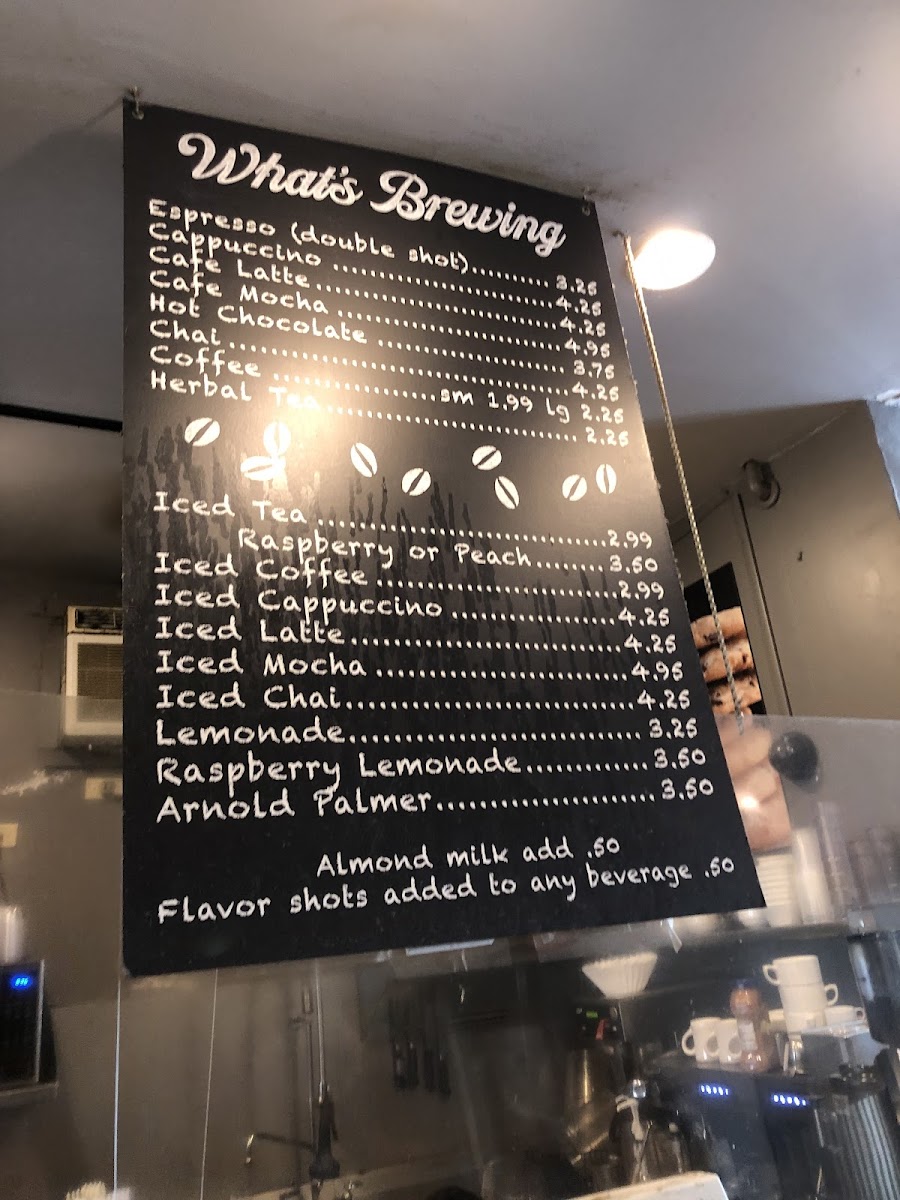 What's Brewing
Espresso (double shot).......... 3.25
Cappuccino ..........................4.25
Cafe Latte............................4.25
Cafe Mocha ..........................4.95
Hot Chocolate ...................... 3.75
Chai ......................................4.25
Coffee ..................sm 1.99 lg 2.25
Herbal Tea............................. 2.25
Iced Tea .................................2.99
Raspberry or Peach.........3.50
Iced Coffee ...........................2.99
Iced Cappuccino ..................4.25
Iced Latte..............................4.25
Iced Mocha ...........................4.95
Iced Chai...............................4.25
Lemonade.............................. 3.25
Raspberry Lemonade.............3.50
Arnold Palmer...................... 3.50
Almond milk add .50
Flavor shots added to any beverage .50